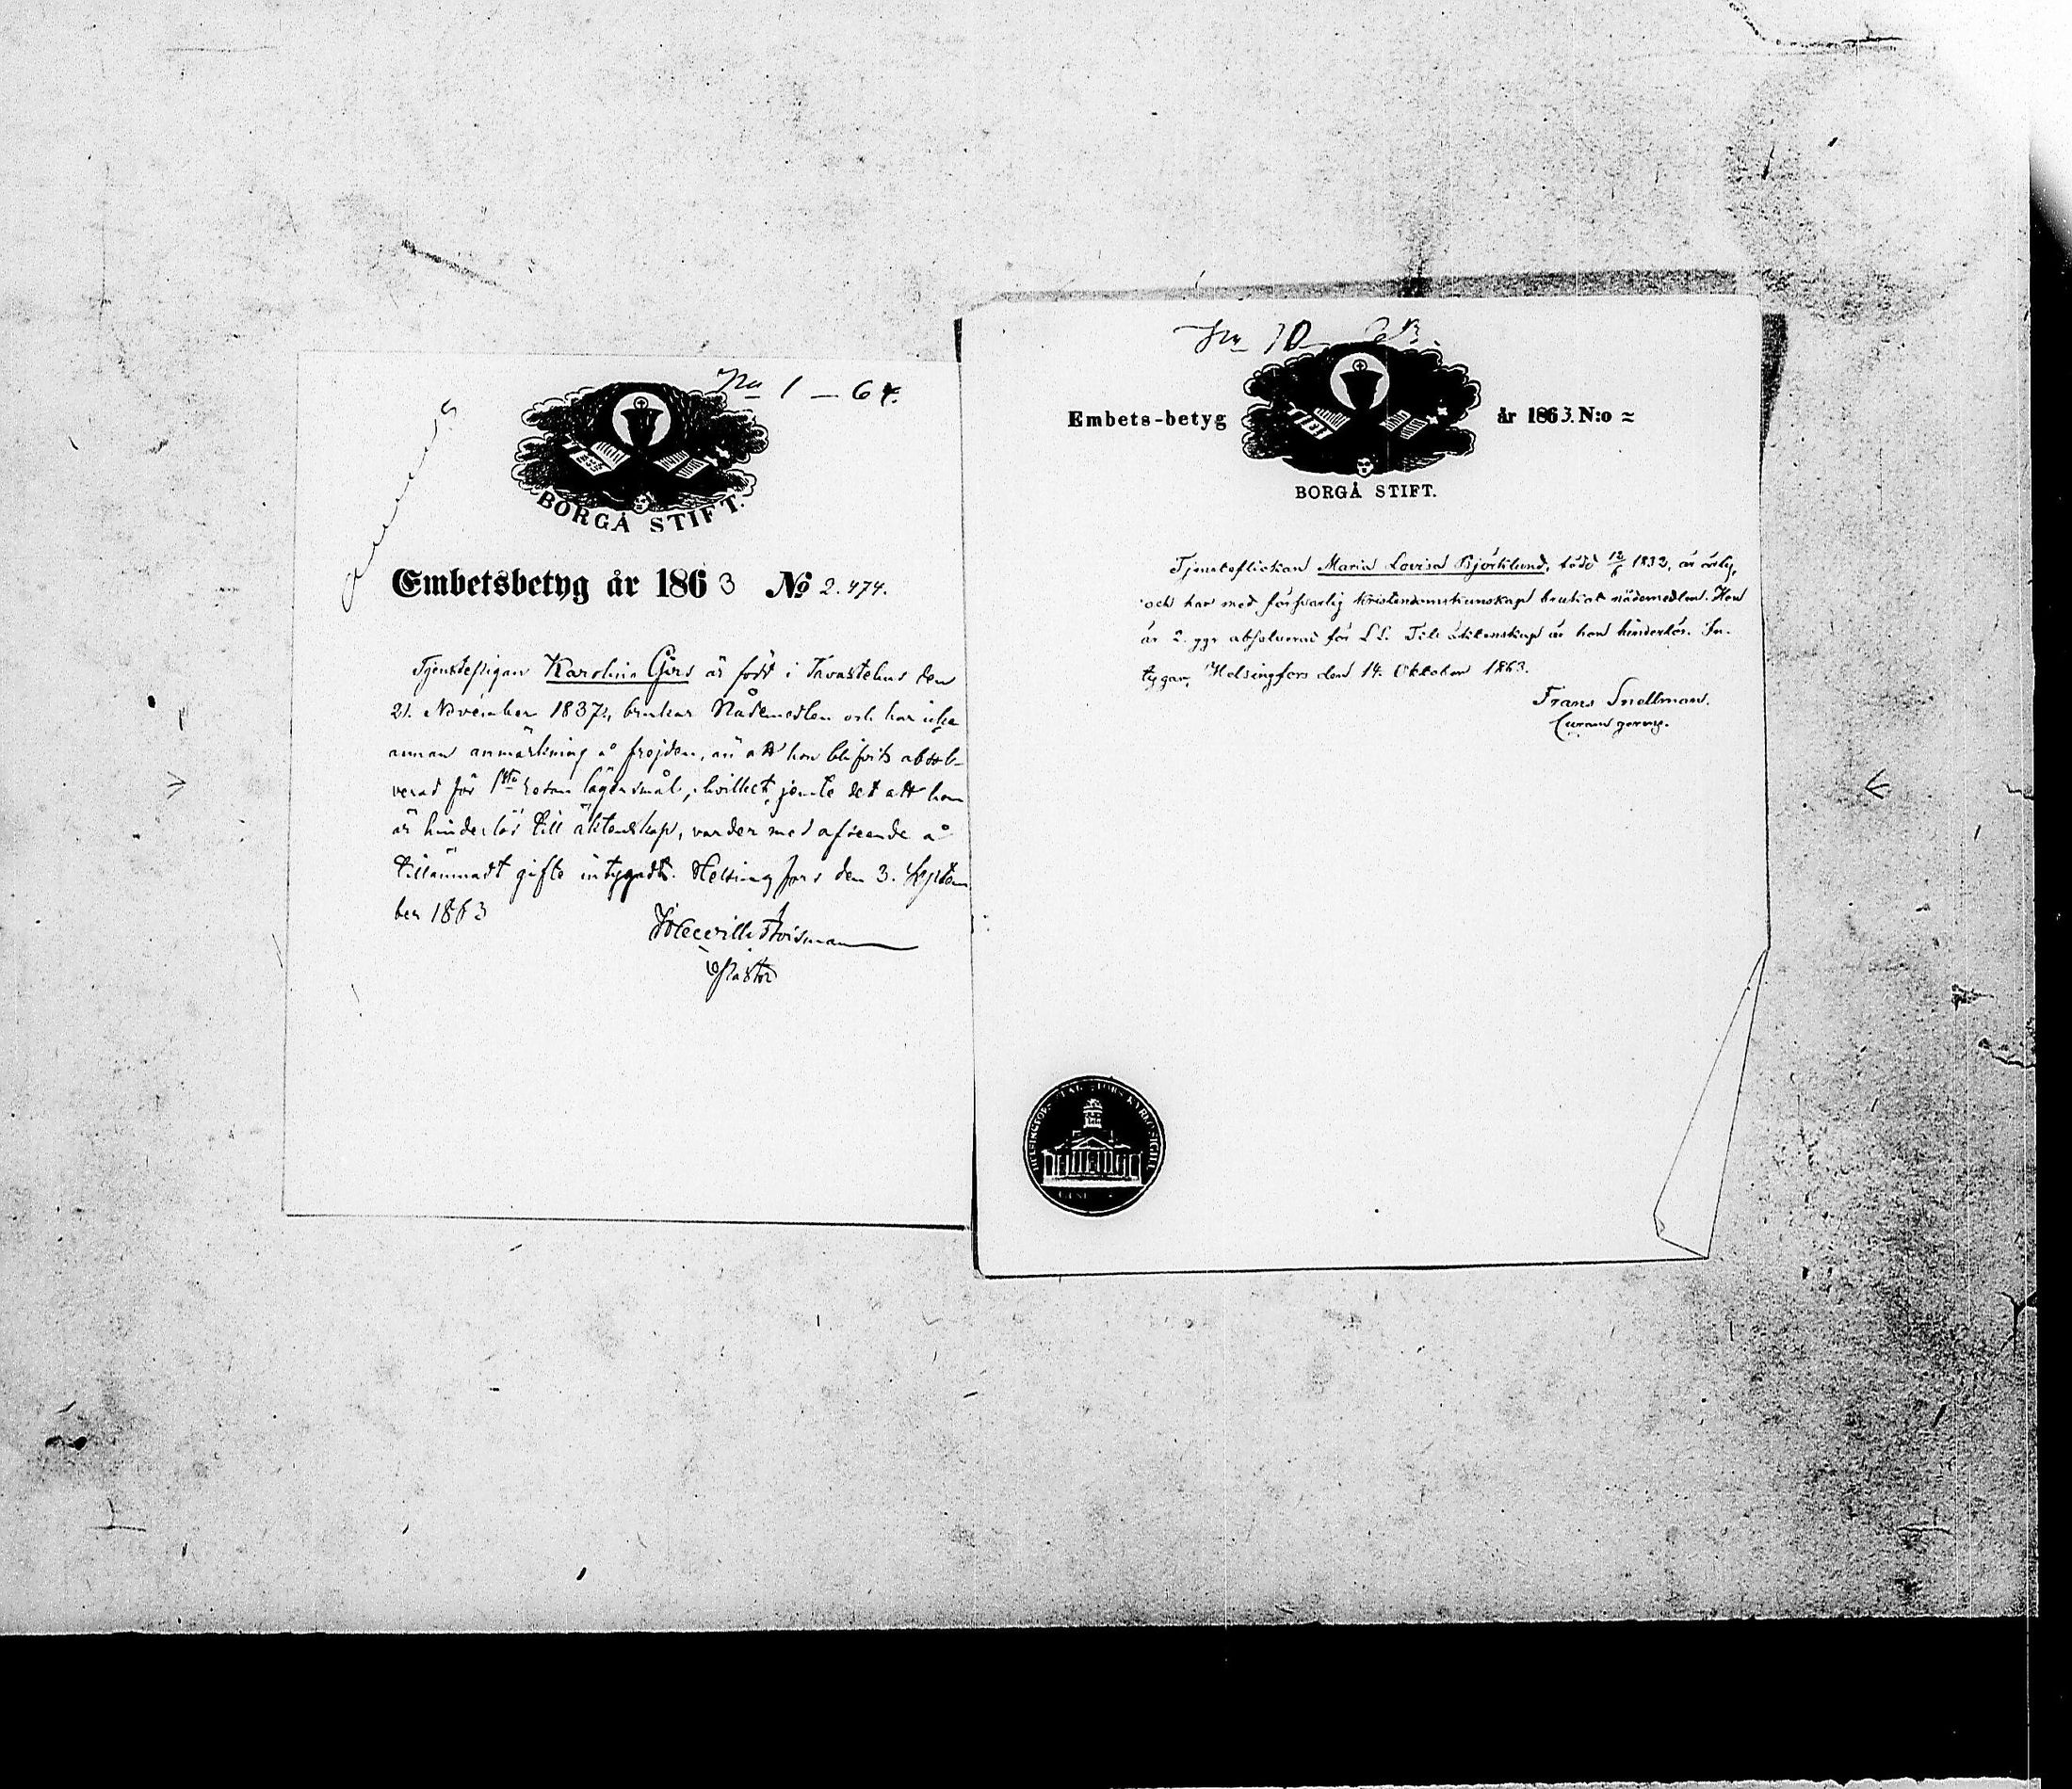 No 1 – 64.
BORGÅ STIFT.
Embetsbetyg år 1863 No 2.474.
Tjenstefligan Karolina Girs är född i Tavastehus den
21. November 1837, brukar Nådemedlen och har icke
annan anmärkning å frejden, än att hon blifvit absol-
verad för 1sta resan lägersmål, hvilket, jemte det att hon
är hinderlös till äktenskap, varder med afseende å
tillämnadt gifte intygadt. Helsingfors den 3. Septem
ber 1863
Pastor
No 10
Embets-betyg år 1863. N:o =
BORGÅ STIFT.
Tjensteflickan Maria Lovisa Björklund, född 12/6 1832, är ärlig,
och har med försvarlig kristendomskunskap brukat nådemedlen. Hon
är 2. ggr absolverad för LS. Till äktenskap är hon hinderlös. In-
tygar, Helsingfors den 14. Oktober 1863.
Frans Snellman.